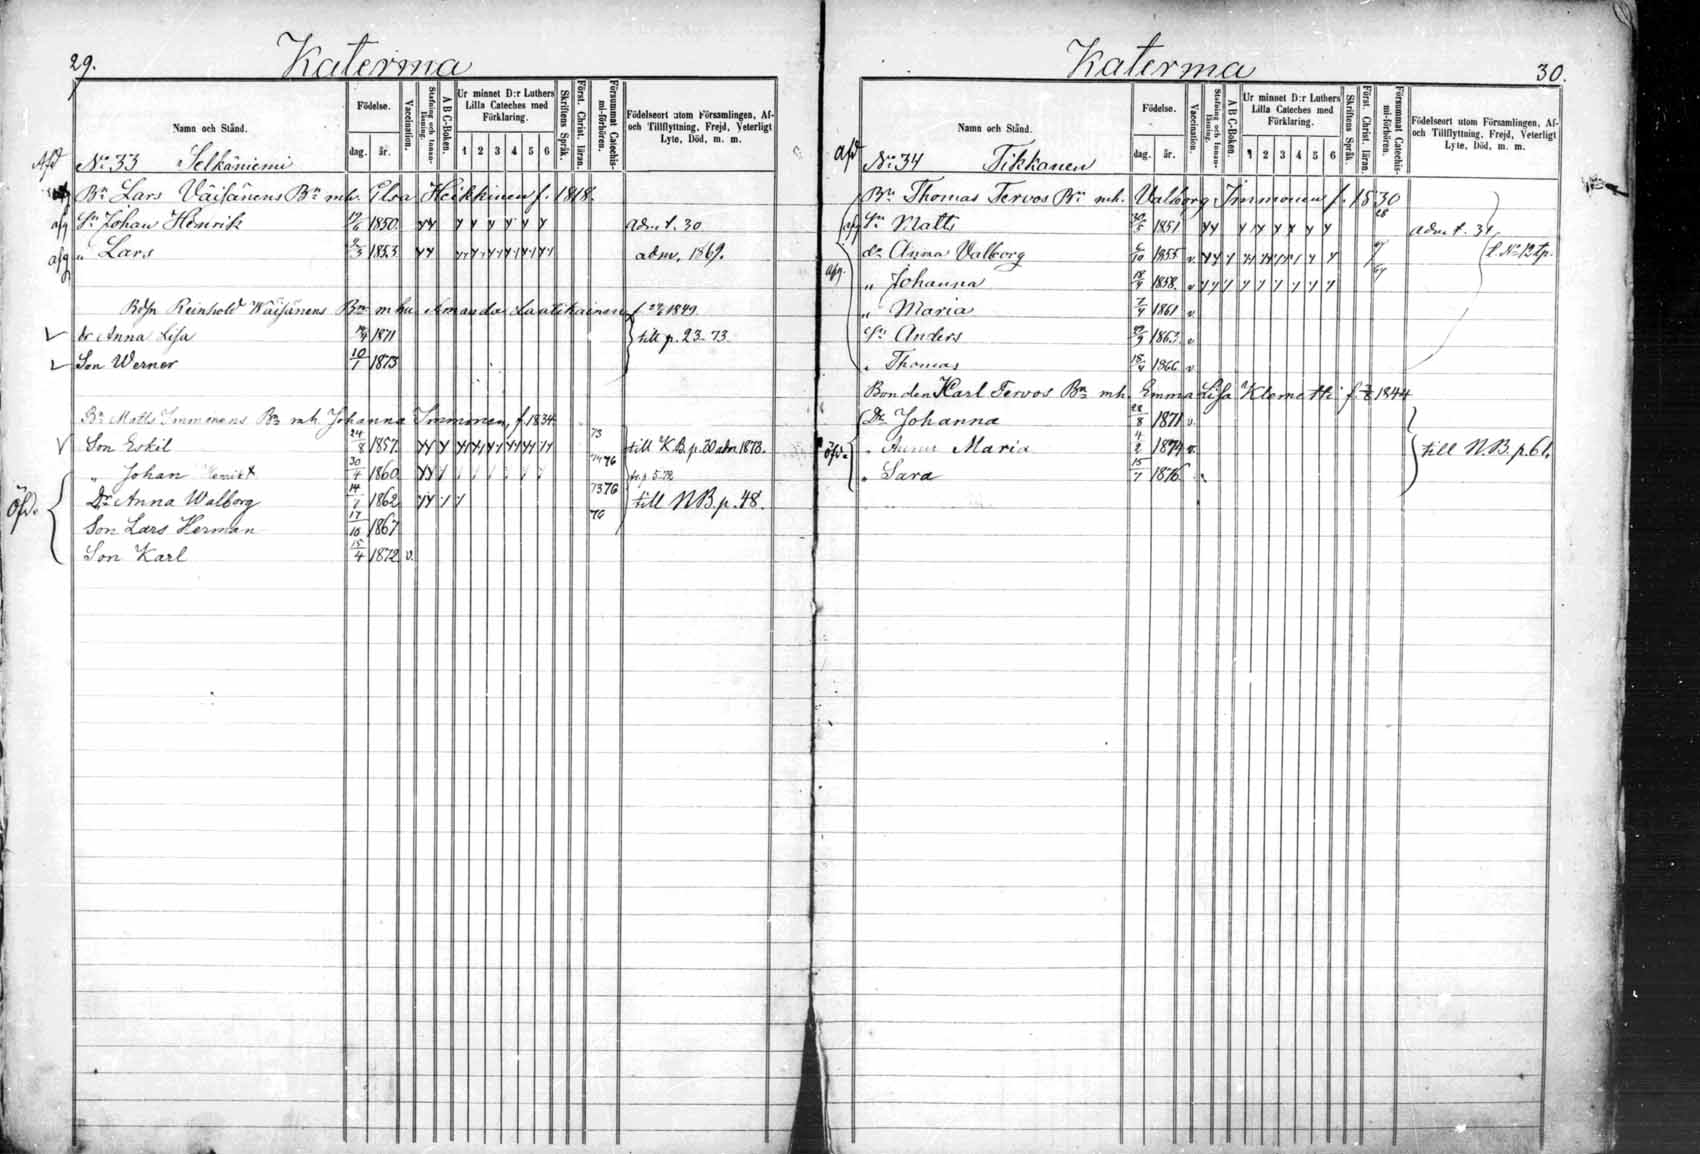 29.
Katerma
Namn och Stånd.
Födelse.
dag.
år.
Vaccination.
Stafning och Innanläsning.
A B C-Boken.
Ur minnet D:r Luthers Lilla Cateches med Förklaring.
1 2 3 4 5 6
Skriftens Språk.
Först. Christ. läran.
Försummat Catechismi-förhören.
Födelseort utom Församlingen, Af- och Tillflyttning, Frejd, Veterligt Lyte, Död, m. m.
Afd No 33 Selkäniemi
Bn Lars Väisänens Bn mh. Elsa Heikkinen f. 1818.
Sn Johan Henrik 1850. adm. t. 30
" Lars 2/3 1853 adm. 1869.
Bdsn Reinhold Wäisänens Bn mhu Amanda Lautikainen f 1849
dr Anna Lisa 1871 till p. 23. 73.
Son Werner 10/1 1873
Bn Matts Immonens Bn mh Johanna Immonen, f. 1834
Son Eskil 24/8 1857 73 till K.B. p. 30 adm 1873.
" Johan Henrik 30/4 1860 74 76
Dr Anna Walborg 14/7 1862 73 76 till N.B. p. 48.
Öfd. Son Lars Herman 17/10 1867 76
Son Karl 15/4 1872 v.
Katerma
30.
Namn och Stånd.
Födelse.
dag.
år.
Vaccination.
Stafning och Innanläsning.
A B C-Boken.
Ur minnet D:r Luthers Lilla Cateches med Förklaring.
1 2 3 4 5 6
Skriftens Språk.
Först. Christ. läran.
Försummat Catechismi-förhören.
Födelseort utom Församlingen, Af- och Tillflyttning, Frejd, Veterligt Lyte, Död, m. m.
afd No 34 Tikkanen
Bn Thomas Tervos Bn mh. Valborg Immonen f. 1830
Sn Matts 1851 adm. t. 31
dr Anna Valborg 6/10 1855 v
" Johanna 1858 v
" Maria 7/4 1861 v
Sn Anders 1863 v
" Thomas 18/4 1866 v
Bonden Karl Tervos Bn mh Emma Lisa Klemetti f. 1844
Dr Johanna 28/8 1871 v
Öfd. " Anna Maria 4/2 1874 v. till N.B. p. 61.
" Sara 15/7 1876